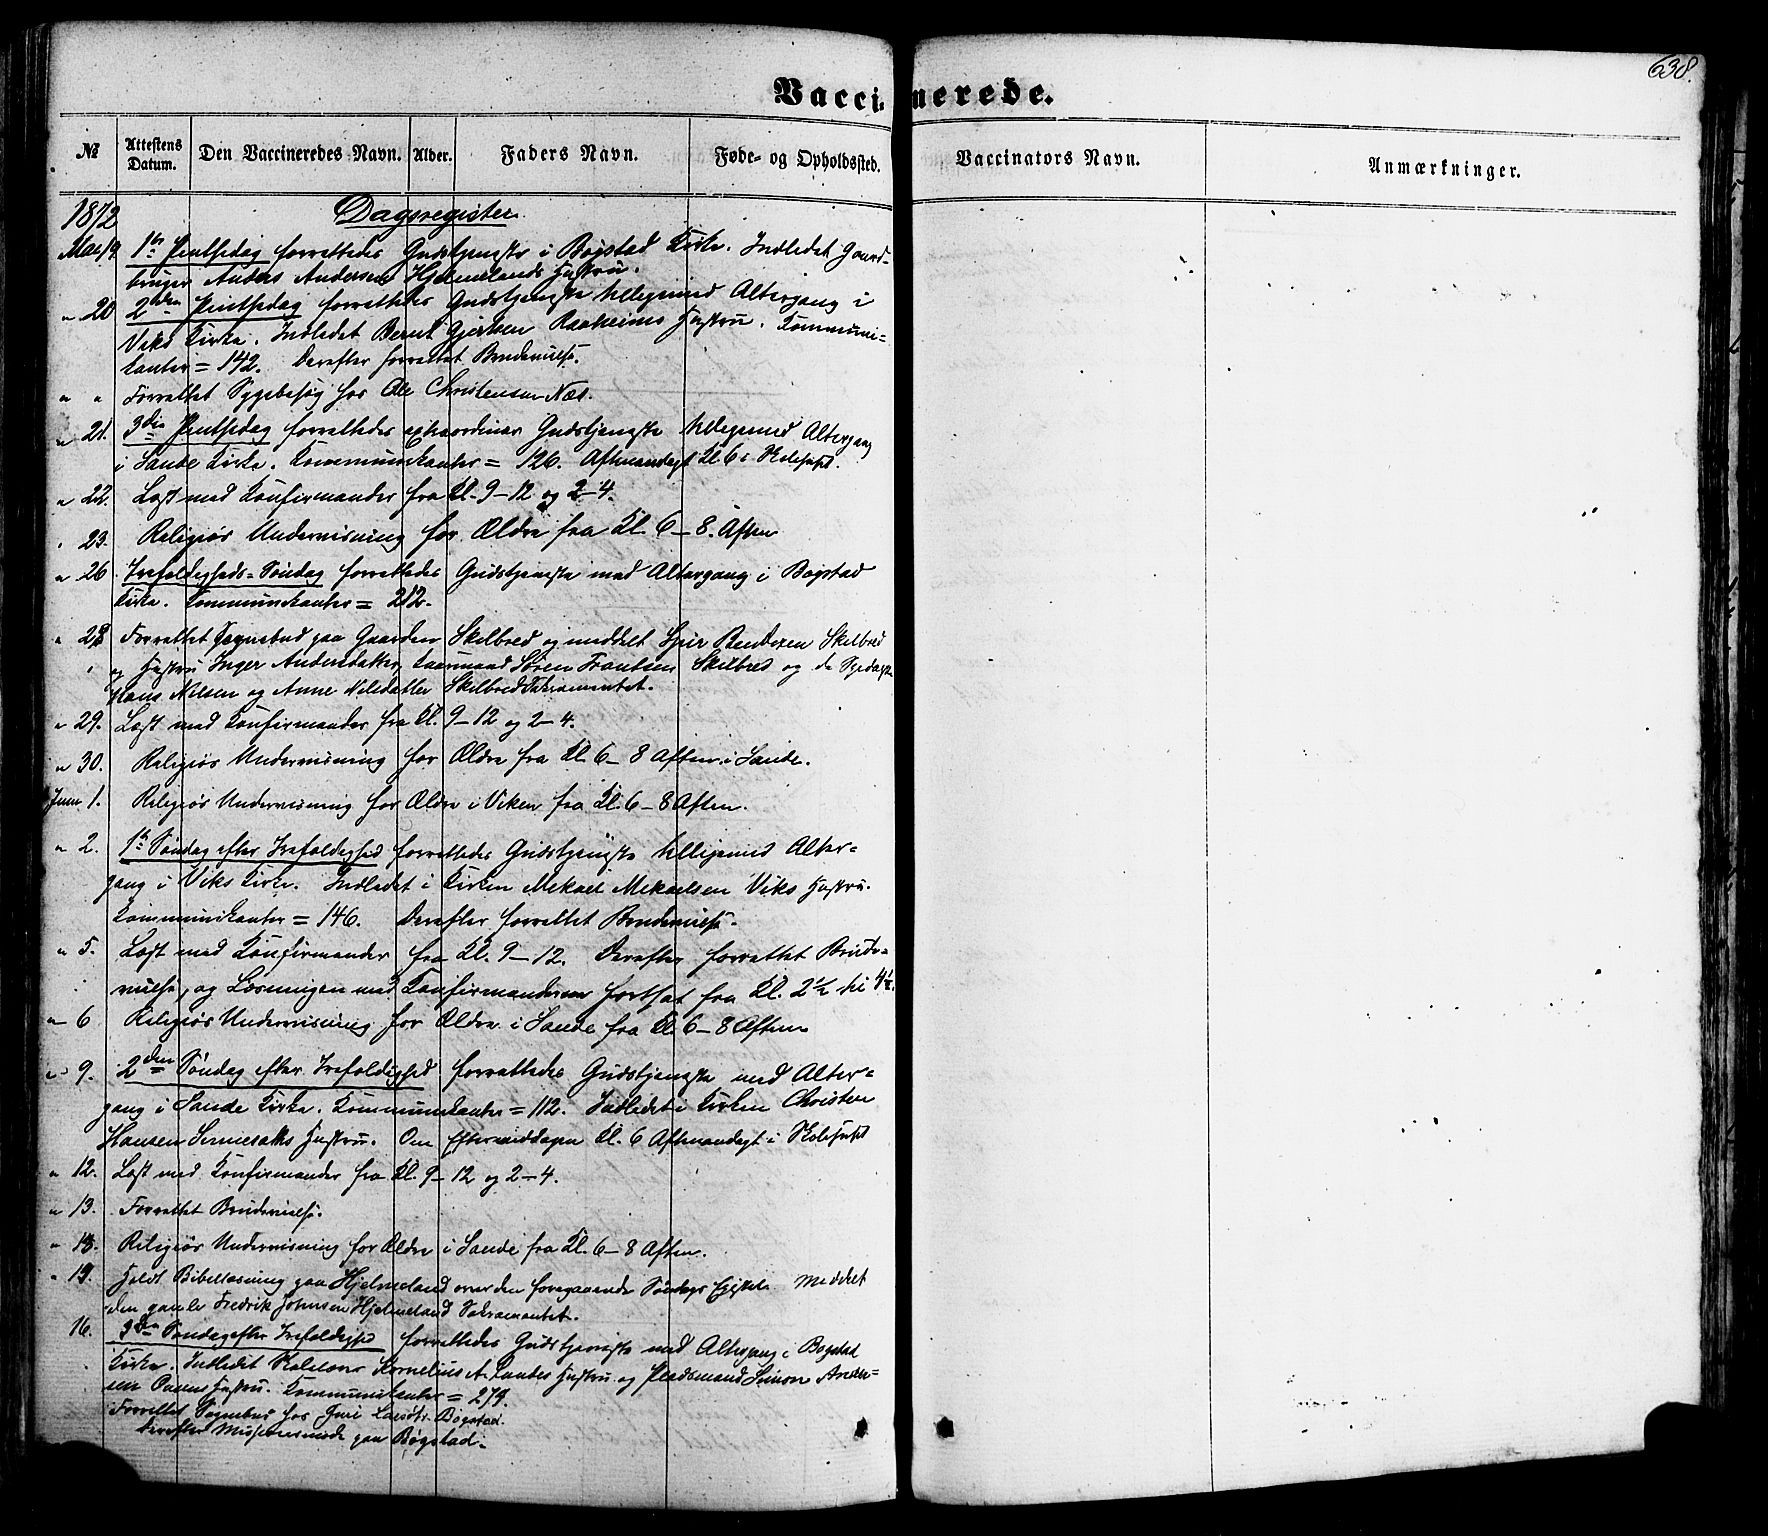 638.
Vaccinerede.
№
Attestens Datum.
Den Vaccineredes Navn.
Alder.
Faders Navn.
Føde- og Opholdssted.
Vaccinators Navn.
Anmærkninger.
1872 Dagsregister.
Mai 19. 1ste Pintsedag forrettedes Gudstjeneste i Bogstad Kirke. Indledet Gaard-
bruger Anders Andersen Hjelmelands Hustru.
" 20 2den Pintsedag forrettedes Gudstjeneste tilligemed Altergang i
Viks Kirke. Indledet Bernt Gjertsen Raaheims Hustru. Kommuni-
kanter = 142. Derefter forrettet Brudevielse.
" " Forrettet Sygebesøg hos Ole Christensen Næs.
" 21. 3die Pintsedag forrettedes extraordinær Gudstjeneste tilligemed Altergang
i Sande Kirke. Kommunikanter = 126. Aftenandagt Kl. 6 i Skolehuset.
" 22. Læst med Konfirmander fra Kl. 9-12 og 2-4.
" 23. Religiøs Undervisning for Ældre fra Kl. 6-8. Aften
" 26 Trefoldigheds-Søndag forrettedes Gudstjeneste med Altergang i Bogstad
Kirke. Kommunikanter = 212.
" 28 Forrettet Sognebud paa Gaarden Skilbred og meddelt Bendixen Skilbred
og Hustru Inger Andersdatter, Kaarmand Søren Frantsen Skilbred og de
Hans Nilsen og Anne Nilsdatter Skilbred Sakramentet.
" 29. Læst med Konfirmander fra Kl. 9-12 og 2-4.
" 30. Religiøs Undervisning for Ældre fra Kl. 6-8 Aften i Sande.
Juni 1. Religiøs Undervisning for Ældre i Viken fra Kl. 6-8 Aften.
" 2. 1ste Søndag efter Trefoldighed forrettedes Gudstjeneste tilligemed Alter-
gang i Viks Kirke. Indledet i Kirken Mekael Mekaelsen Viks Hustru.
Kommunikanter = 146. Derefter forrettet Brudevielse.
" 5. Læst med Konfirmander fra Kl. 9-12. Derefter forrettet Brude-
vielse, og Læsningen med Konfirmanderne fortsat fra Kl. 2½ til 4½.
" 6 Religiøs Undervisning for Ældre i Sande fra Kl. 6-8 Aften
" 9. 2den Søndag efter Trefoldighed forrettedes Gudstjeneste med Alter-
gang i Sande Kirke. Kommunikanter = 112. Indledet i Kirken Christen
Hansen Hustru. Om Eftermiddagen Kl. 6 Aftenandagt i Skolehuset
" 12. Læst med Konfirmander fra Kl. 9-12 og 2-4.
" 13. Forrettet Brudevielse.
" 13. Religiøs Undervisning for Ældre i Sande fra Kl. 6-8 Aften.
" Holdt Bibellæsning paa Hjelmeland over den foregaaende Søndags Epistel. Meddelt
den gamle Fredrik Johnsen Hjelmeland Sakramentet.
16. 3die Søndag efter Trefoldighed forrettedes Gudstjeneste med Altergang i Bogstad
Kirke. Indledet Skolelærer Kornelius A. Landes Hustru og Pladsmand Simon Ander-
sen Hustru. Kommunikanter = 279.
Forrettet Sognebud hos Guri Larsdtr. Bogstad.
Derefter Missionsmøde paa Bøgstad.